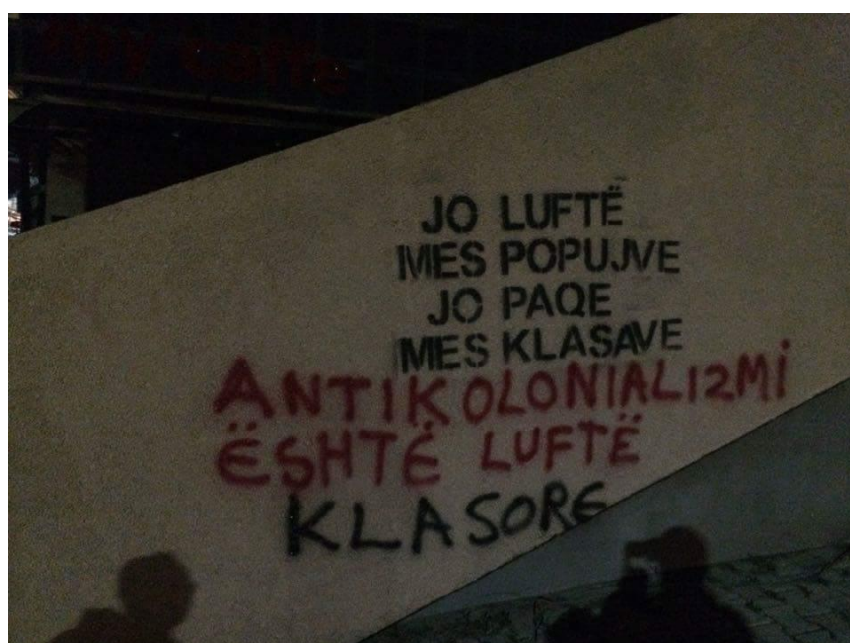 JO LUFTË
MES POPUJVE
JO PAQE
MES KLASAVE
ANTIKOLONIALIZMI
ËSHTË LUFTË
KLASORE